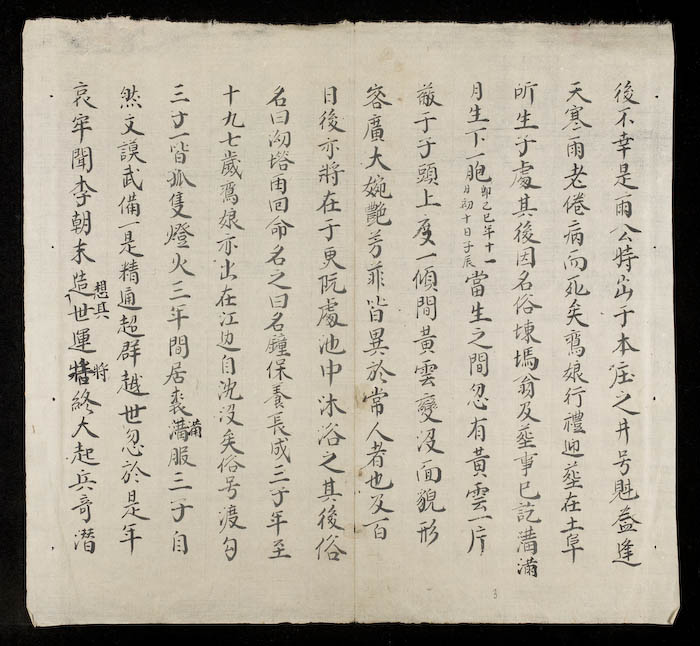 後不幸是雨公特出于本庄之井号魁益逢
天寒雨老倦病而死矣鸞娘行禮迎塟在土阜
所生子處其後因名俗㙂塢翁及塟事已訖溝滿
月生下一胞即乙巳年十一月初十日子辰當生之間忽有黄雲一片
蔽于子頭上度一傾間黄雲變没面貌形
容廣大婉艷芳菲皆異於常人者也及百
日後亦將在于更阮處池中沐浴之其後俗
名曰沕塔再回命名之曰名鐘保養長成三子年至
十九七歲鸞娘亦出在江边自沈没矣俗号渡勾
三子一皆孤隻燈火三年間居喪滿服三子自
然文謨武備一是精通超群越世忽於是年
哀牢聞李朝末造想其世運將終大起兵哥潛